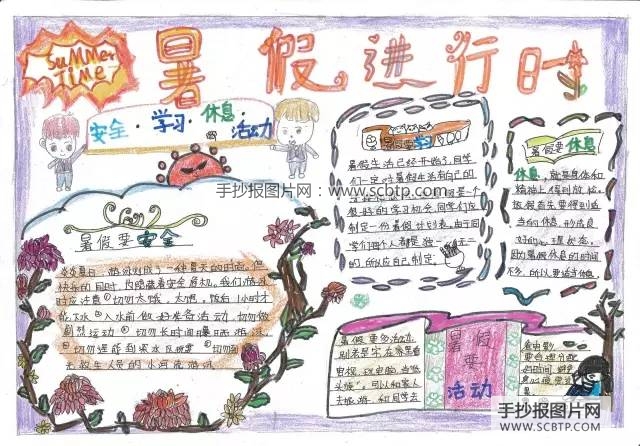 SUMMer
TIMe
暑假进行时
安全·学习·休息·
活动
手抄报图片网：www.scbtp.com
暑假要学习
暑假生活已经开始了,同学
们一定对暑假生活有自己的
是一个
很好的学习机会,同学们应
制定一份暑假计划表,由于同
学们每个人都是独一无二
的,所以应自己制定。
暑假要休息
休息,就是身体和
精神上得到放松,
放假首先要得到适
当的休息,形成良
好的心理状态,
因为暑假休息的时间
不多,所以要适当休
暑假要安全
炎炎夏日,游泳则成了一件夏天的时尚,但
快乐的同时,均隐藏着安全危机,我们游泳
时应注意①切勿太饿、太饱。饭后1小时才
能下水②入水前做好准备活动,切勿做
剧烈运动④切勿长时间曝晒游泳,
⑤切勿进到深水区
无救生人员的小河流游泳
暑假要多活动,
别老是宅在家里看
电视、玩电脑,当"低
头族",可以和家人
去旅游,和同学去
暑假要活动
看电影,
要合理分配
好时间,
手抄报图片网
SCBTP.COM